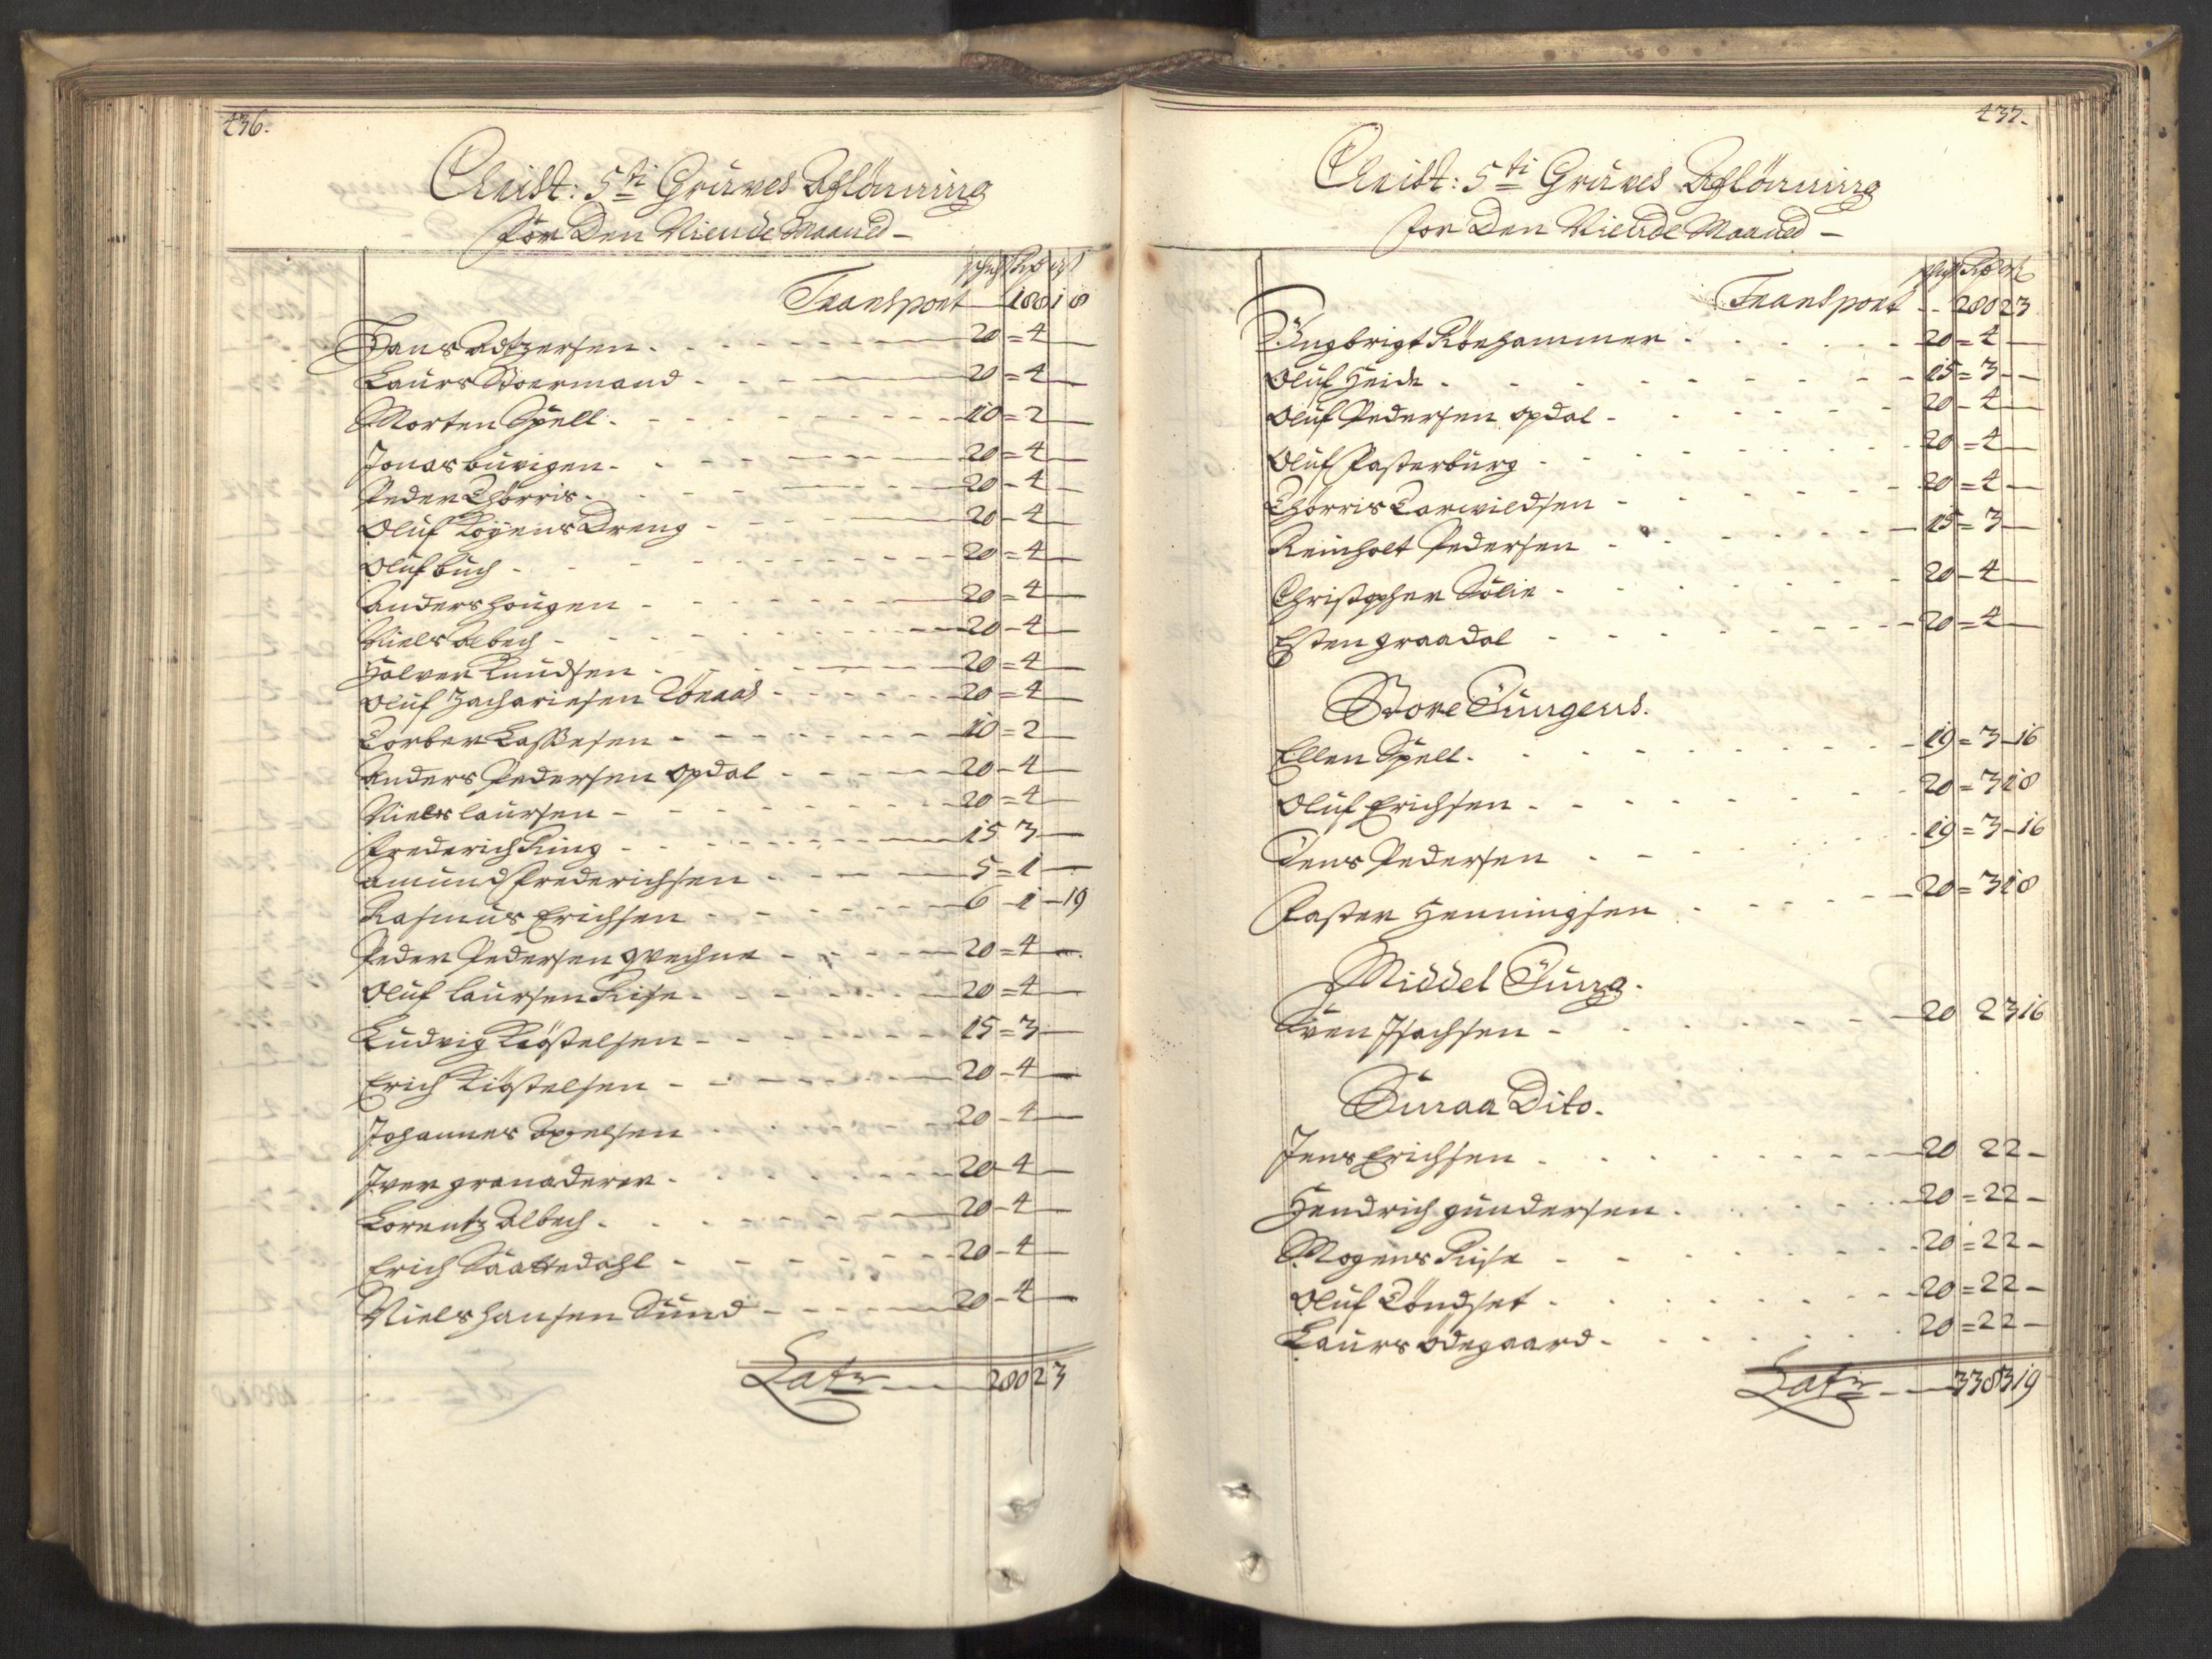 436.
Christ: 5ti Gruves Afflönning
for Den Niende Maaned -
Transport 188 1 8
Hans
Laurs Stoermand - 20 = 4 -
Morten Spell - 10 = 2 -
Jonas buvigen - 20 = 4 -
Peder Thorris - 20 - 4 -
Oluf Royens Dreng - 20 - 4 -
Oluf buch - 20 = 4 -
Anders hougen - 20 = 4 -
Niels Albech - 20 - 4 -
Halver Knudsen - 20 = 4 -
Oluf Zachariesen Tönaas - 20 = 4 -
Torber Lassesen - 10 = 2 -
Anders Pedersen opdal - 20 - 4 -
Niels laursen - 20 = 4 -
Frederich Ring - 15 3 -
Amund Frederichsen - 5 = 1 -
Rasmus Erichsen - 6 - 1 - 19
Peder Pedersen - 20 = 4 -
Oluf laursen Rise - 20 = 4 -
Ludvig Kiöstelsen - 15 = 3 -
Erich Kiöstelsen - 20 - 4 -
Johannes Axelsen - 20 - 4 -
Iver granaderer - 20 - 4 -
Lorentz Albech - 20 - 4 -
Erich Saattedahl - 20 - 4 -
Niels hansen Sund - 20 - 4 -
Latr - 280 2 3
437.
Christ: 5ti Gruves Afflönning
for Den Niende Maaned -
Transport - 280 2 3
Ingbrigt Rönhammer - 20 = 4 -
Oluf Heide - 15 = 3 -
Oluf Pedersen opdal - 20 - 4 -
Oluf Pasterburg - 20 = 4 -
Thorris Torvildsen - 20 = 4 -
Reinholt Pedersen - 15 = 3 -
Christopher Sölie - 20 - 4 -
Esten graadal - 20 = 4 -
Store Jungens.
Ellen Spell - 19 = 3 - 16
Oluf Erichsen - 20 = 3 1 8
Jens Pedersen - 19 = 3 - 16
Paster Henningsen - 20 = 3 1 8
Middel Jung.
Sven Isachsen - 20 2 3 16
Smaa Dito.
Jens Erichsen - 20 2 2 -
Hendrich gundersen - 20 = 2 2 -
Mogens Rise - 20 = 2 2 -
Oluf Töndset - 20 = 2 2 -
Laurs ödegaard - 20 = 2 2 -
Latr - 338 3 19